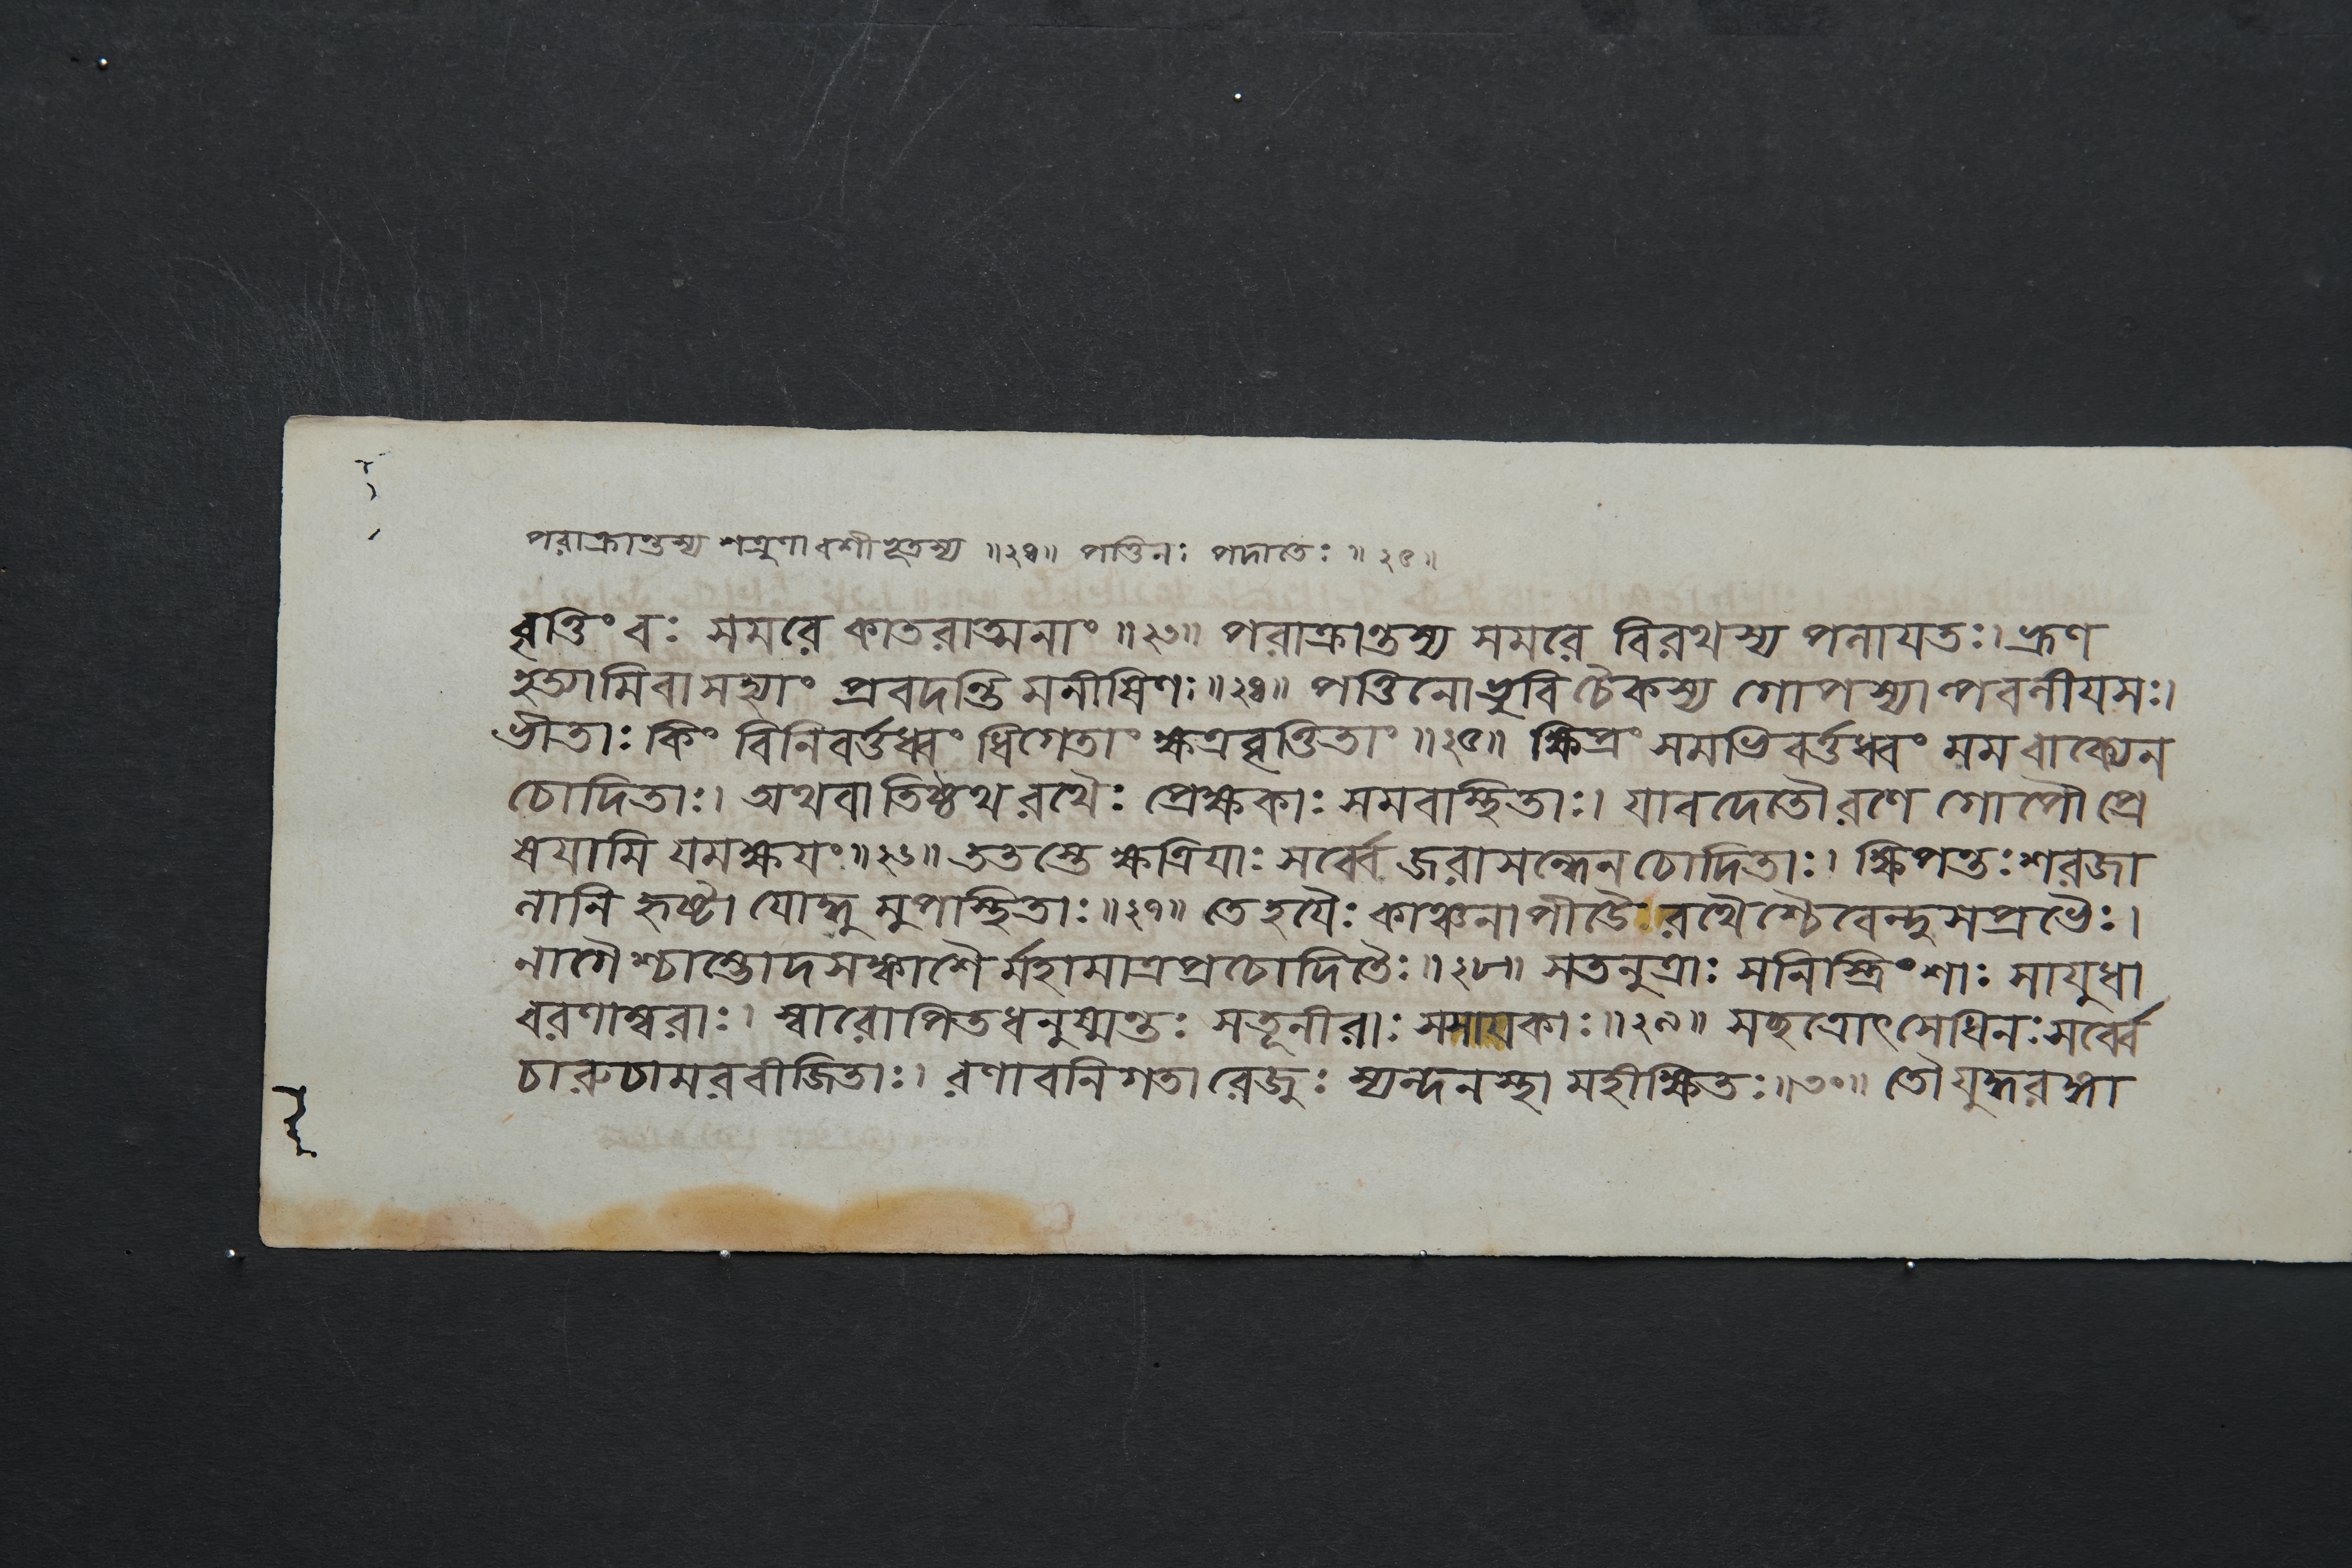 পরাক্রান্তস্য শত্রুণা বশীভূতস্য ॥২৪॥ পত্তিনঃ পদাতেঃ ॥২৫॥
বৃত্তিং বঃ সমরে কাতরাত্মনাং ॥২৩॥ পরাক্রান্তস্য সমরে বিরথস্য পলাযতঃ। ভ্রূণ
হত্যামিবাসহ্যাং প্রবদন্তি মনীষিণঃ॥২৪॥ পত্তিনো ভুবি চৈকস্য গোপস্যাল্পবলীযসঃ।
ভীতাঃ কিং বিনিবর্ত্তধ্বং ধিগেতাং ক্ষত্রবৃত্তিতাং ॥২৫॥ ক্ষিপ্রং সমভিবর্ত্তধ্বং মম বাক্যেন
চোদিতাঃ। অথবা তিষ্ঠথ রথৈঃ প্রেক্ষকাঃ সমবাস্থিতাঃ। যাবদেতৌ রণে গোপৌ প্রে
ষযামি যমক্ষযং॥২৬॥ ততস্তে ক্ষত্রিযাঃ সর্ব্বে জরাসন্ধেন চোদিতাঃ। ক্ষিপন্তঃ শরজা
লানি হৃষ্টা যোদ্ধুমুপস্থিতাঃ॥২৭॥ তে হযৈঃ কাঞ্চনাপীডৈ রথৈশ্চৈবেন্দুসপ্রভৈঃ।
নাগৈশ্চাম্ভোদসঙ্কাশৈর্মহামাত্রপ্রচোদিতৈঃ॥২৮॥ সতনুত্রাঃ সনিস্ত্রিংশাঃ সাযুধা
বরণাম্বরাঃ। স্বারোপিতধনুষ্মন্তঃ সতূণীরাঃ সসাযকাঃ॥২৯॥ সছত্রোৎসেধিনঃ সর্ব্বে
চারুচামরবীজিতাঃ। রণাবনিগতা রেজুঃ স্যন্দনস্থা মহীক্ষিতঃ॥৩০॥ তৌ যুদ্ধরঙ্গা